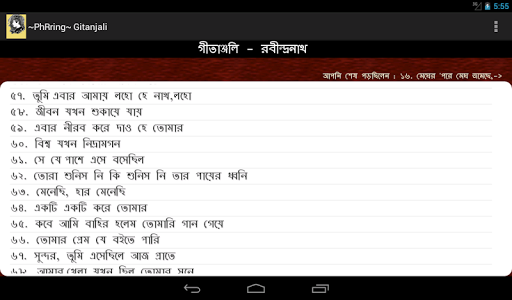 5:55
~PhRring~ Gitanjali
গীতাঞ্জলি - রবীন্দ্রনাথ
আপনি শেষ পড়ছিলেন : ১৬. মেঘের 'পরে মেঘ জমেছে,->
৫৭. তুমি এবার আমায় লহো হে নাথ,লহো
৫৮. জীবন যখন শুকায়ে যায়
৫৯. এবার নীরব করে দাও হে তোমার
৬০. বিশ্ব যখন নিদ্রামগন
৬১. সে যে পাশে এসে বসেছিল
৬২. তোরা শুনিস নি কি শুনিস নি তার পায়ের ধ্বনি
৬৩. মেনেছি, হার মেনেছি
৬৪. একটি একটি করে তোমার
৬৫. কবে আমি বাহির হলেম তোমারি গান গেয়ে
৬৬. তোমার প্রেম যে বইতে পারি
৬৭. সুন্দর, তুমি এসেছিলে আজ প্রাতে
৬৮. আমার খেলা যখন ছিল তোমার সনে